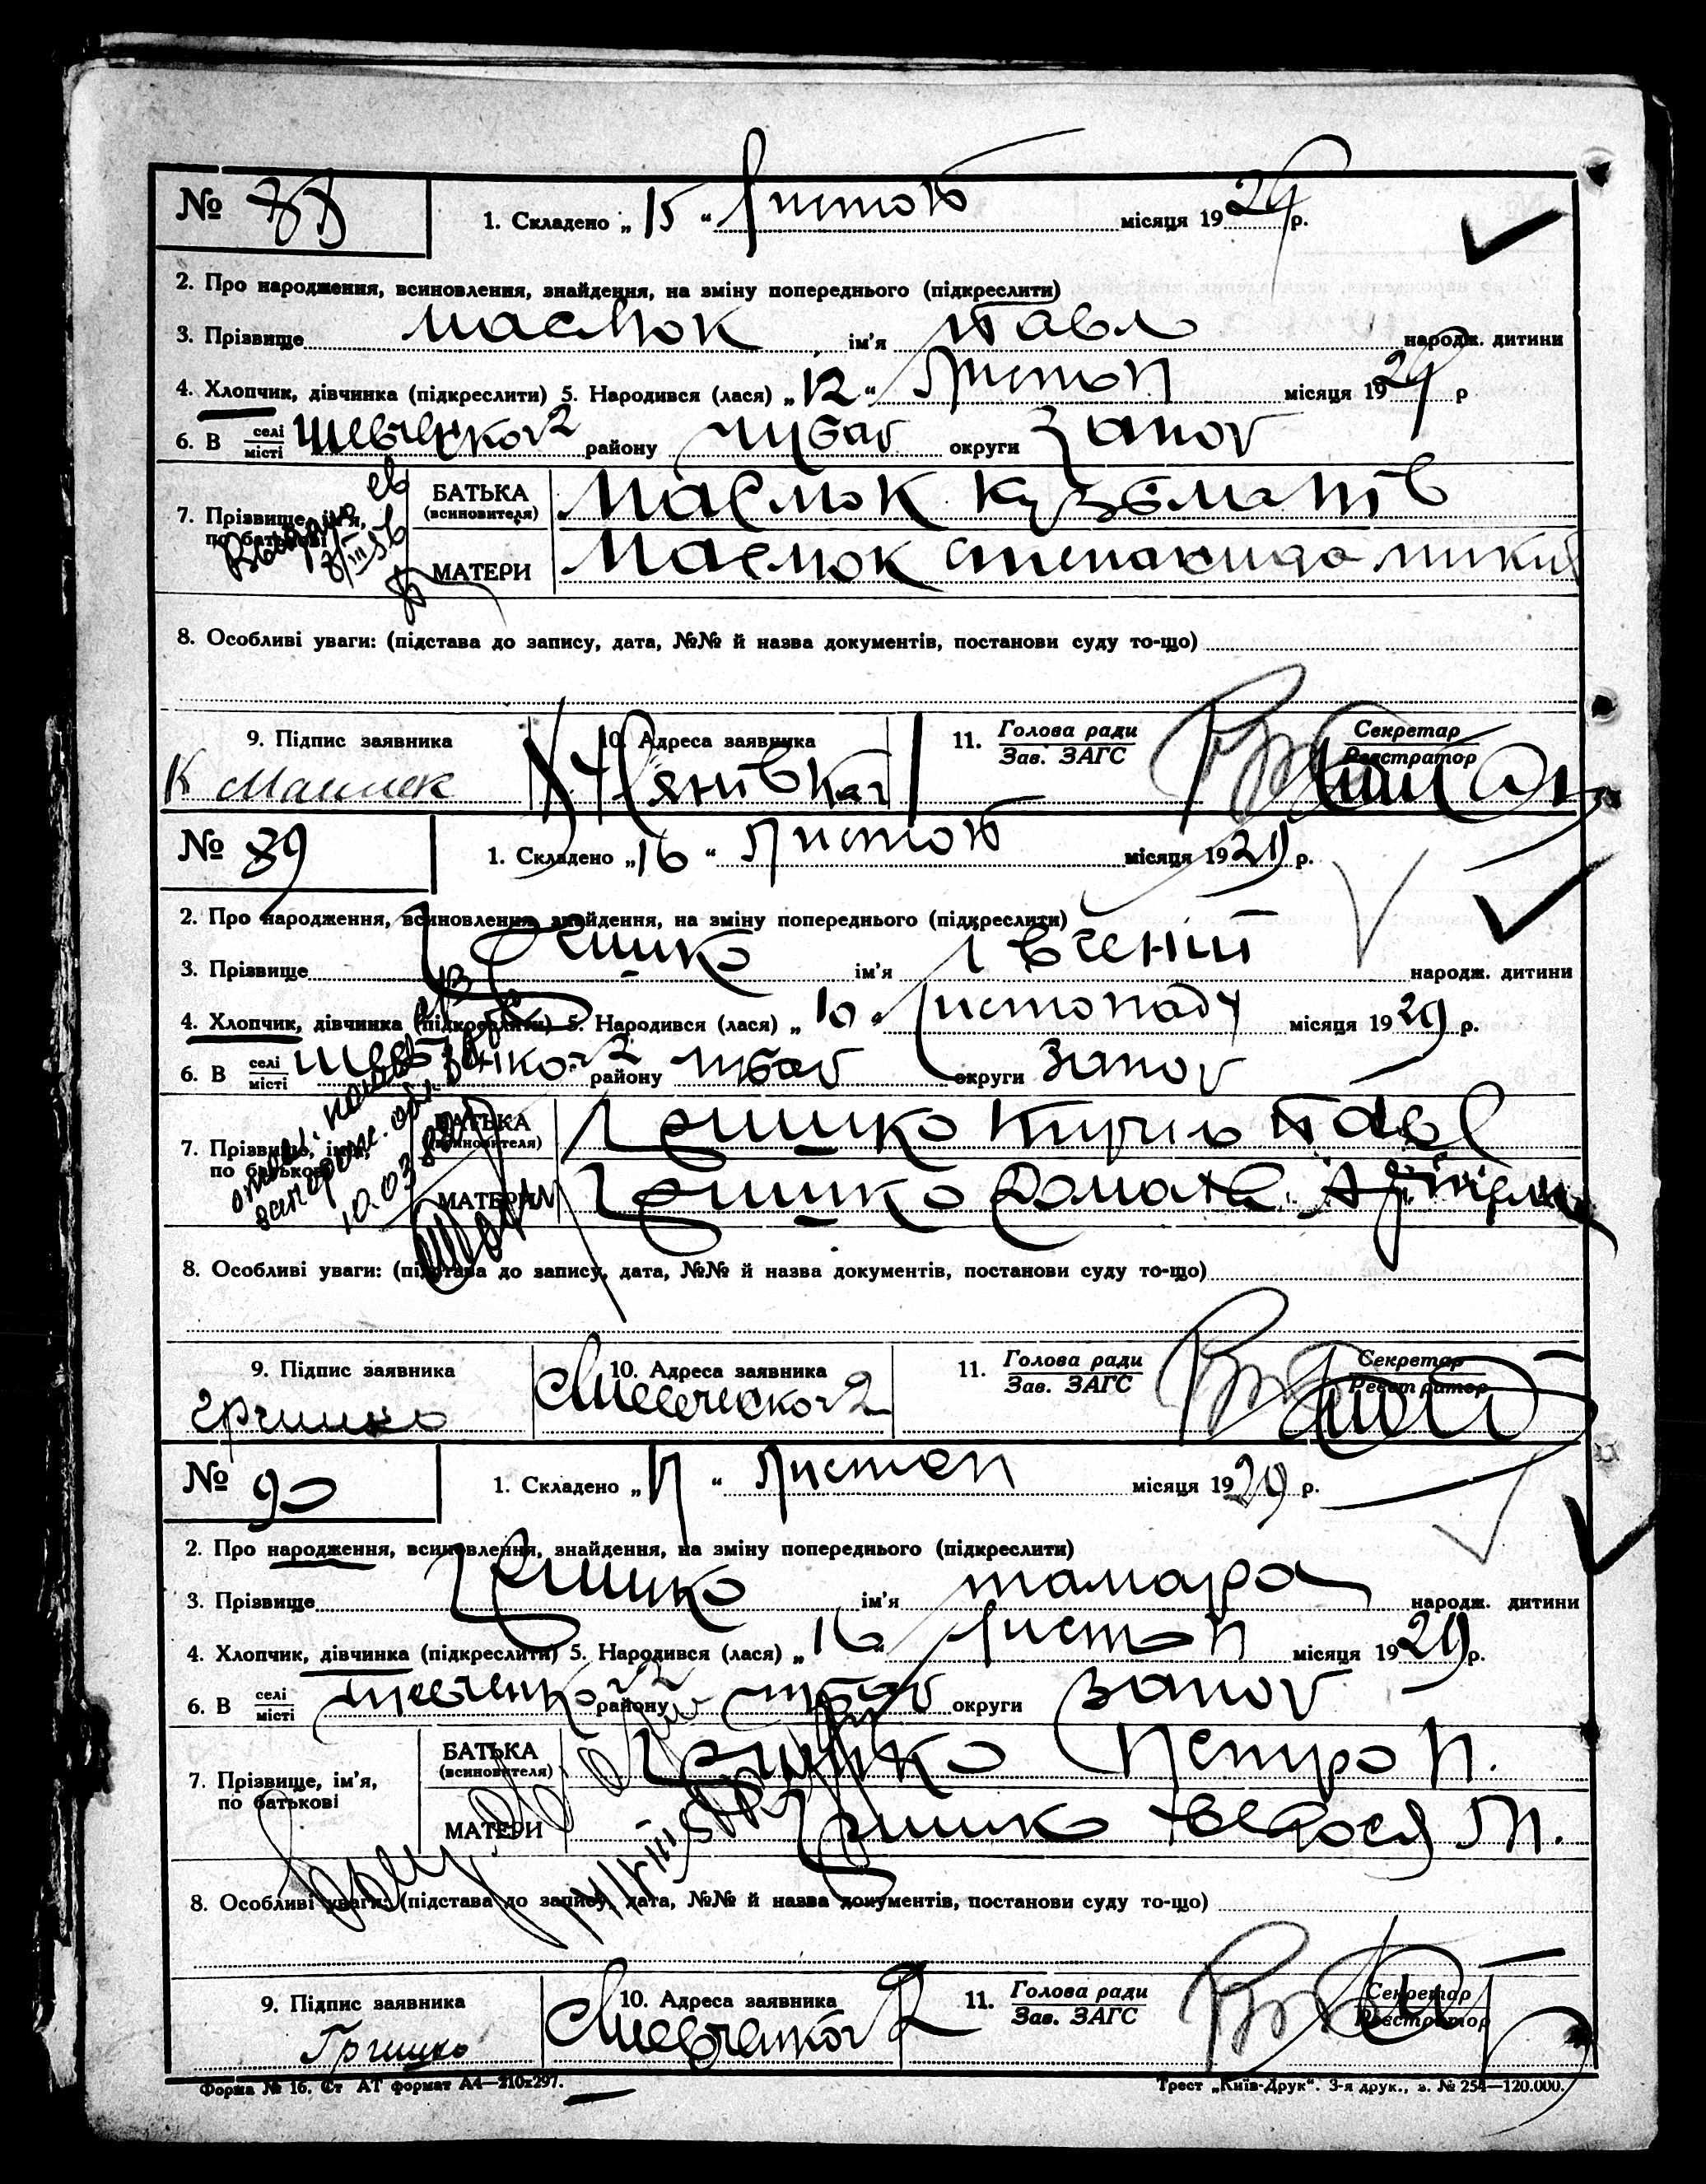 № 88
1. Складено „ 15 “ Листоп місяця 1929 р.
2. Про народження, всиновлення, знайдення, на зміну попереднього (підкреслити)
3. Прізвище Маслюк ім'я Павло народж. дитини
4. Хлопчик, дівчинка (підкреслити) 5. Народився (лася) „ 12 “ Листоп місяця 1929 р
6. В селі/місті Шевченког 2 району округи Запор
7. Прізвище, ім'я, по батькові
БАТЬКА (всиновителя) Маслюк Кузьма
МАТЕРИ Маслюк Степанида Мики
8. Особливі уваги: (підстава до запису, дата, №№ й назва документів, постанови суду то-що)
9. Підпис заявника
10. Адреса заявника
11. Голова ради / Зав. ЗАГС
Секретар / Реєстратор
К
№ 89
1. Складено „ 16 “ Листоп місяця 1929 р.
2. Про народження, всиновлення, знайдення, на зміну попереднього (підкреслити)
3. Прізвище Гришко ім'я Євгеній народж. дитини
4. Хлопчик, дівчинка (підкреслити) 5. Народився (лася) „ 10 “ Листопаду місяця 1929 р.
6. В селі/місті Шевченког 2 району округи Запор
7. Прізвище, ім'я, по батькові
БАТЬКА (всиновителя) Гришко Кирило Павл
МАТЕРИ Гришко
10.03
8. Особливі уваги: (підстава до запису, дата, №№ й назва документів, постанови суду то-що)
9. Підпис заявника
10. Адреса заявника
11. Голова ради / Зав. ЗАГС
Секретар / Реєстратор
Гришко
Шевченког 2
№ 90
1. Складено „ 17 “ Листоп місяця 1929 р.
2. Про народження, всиновлення, знайдення, на зміну попереднього (підкреслити)
3. Прізвище Гришко ім'я Тамара народж. дитини
4. Хлопчик, дівчинка (підкреслити) 5. Народився (лася) „ 16 “ Листоп місяця 1929 р.
6. В селі/місті Шевченког 2 району округи Запор
7. Прізвище, ім'я, по батькові
БАТЬКА (всиновителя) Гришко Петро П.
МАТЕРИ Гришко М.
8. Особливі уваги: (підстава до запису, дата, №№ й назва документів, постанови суду то-що)
9. Підпис заявника
10. Адреса заявника
11. Голова ради / Зав. ЗАГС
Секретар / Реєстратор
Гришко
Шевченког 2
Форма № 16. Ст АТ формат А4—210x297.
Трест „Київ-Друк“. 3-я друк., з. № 254—120.000.